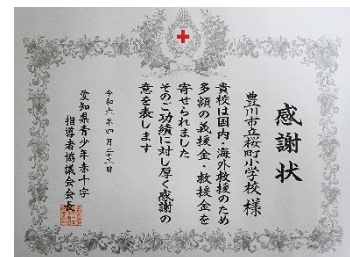 感謝状
豊川市立桜町小学校 様
貴校は国内・海外救援のため
多額の義援金・救援金を
寄せられました
そのご功績に対し厚く感謝の
意を表します
令和六年四月二十三日
愛知県青少年赤十字
指導者協議会会長